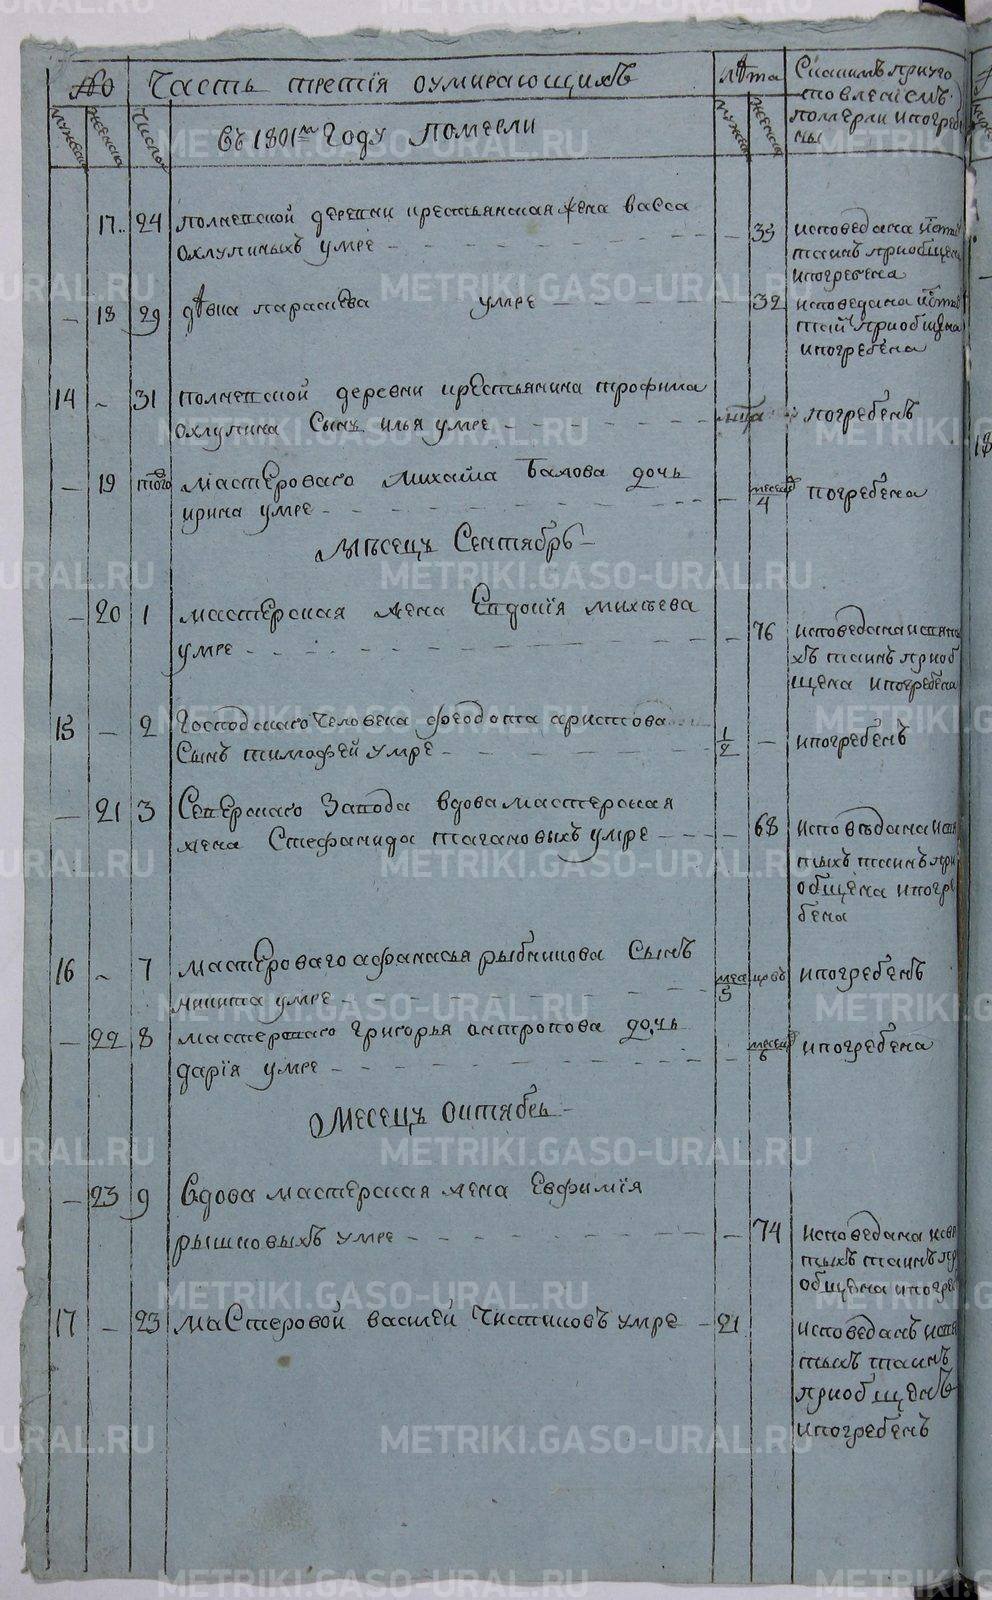 № Часть третїя оумирающихъ лѣта Скакимъ приуго
товленїемъ
мужеска женска число Въ 1801м Году померли мужеска женска померли ипогребе
ны
17 24 полченской деревни крестьянская жена васса
охлупиныхъ умре 39 исповедана
таинъ приобщена
ипогребена
18 29 дѣвка параскева умре 32 исповедана
таинъ приобщена
ипогребена
14 31 полченской деревни крестьянина трофима
охлупина Сынъ илья умре погребенъ
19 того мастероваго михаила балова дочь месецъ
4 погребена
ирина умре
мѣсецъ Сентябрь
20 1 мастерская жена Евдокїя михѣева
умре 76 исповедана исвяты
хъ таинъ приоб
щена ипогребена
15 2 Господскаго человека феодота аристова
Сынъ тимофей умре 1/2 ипогребенъ
21 3 Северскаго Завода вдова мастерская
жена Стефанида тагановыхъ умре 68 исповѣдана исвя
тыхъ таинъ при
общена ипогре
бена
16 7 мастероваго афанасья рыбникова Сынъ
никита умре месцовъ
5 ипогребенъ
22 8 мастерскаго григорья антропова дочь
дарїя умре месецъ
6 ипогребена
Месецъ октябрь
23 9 вдова мастерская жена Евфимїя
рышковыхъ умре 74 исповедана исвя
тыхъ таинъ пр
общена ипогре
17 23 маСтеровой василей Чистиковъ умре 21 исповеданъ исвя
тыхъ таинъ
приобщенъ
ипогребенъ
METRIKI.GASO-URAL.RU